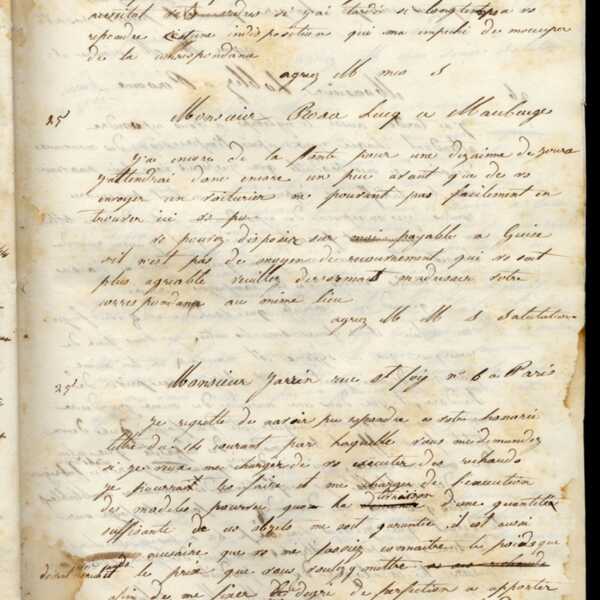 si j'ai tardé si longtemps a vs
repondre c'est une indisposition qui ma empeché de m'occuper
de la correspondance
agrez M mes S
25 Monsieur Rosa Lucq a Maubeuge
J'ai encore de la fonte pour une dizaine de jours
j'attendrai donc encore un peu avant que de vs
envoyer un voiturier ne pouvant pas facilement en
trouver ici
vs pouvez disposer sur moi payable a Guise
s'il n'est pas de moyen de recouvrement qui vs soit
plus agréable veuillez desormais m'adresser votre
correspondance au même lieu
agrez M M S Salutations
25 Monsieur Jarrin rue St foy n° 6 a Paris
Je regrette de n'avoir pu repondre a votre honorée
lettre du courant par laquelle vous me demandez
si je veux me charger de vs executer des rechauds
je pourrait les faire et me charger de l'execution
des modeles pourvu que la livraison d'une quantitée
suffisante de ces objets me soit garantie il est aussi
necessaire que vs me fassiez connaitre le poids que
le prix que vous voulez y mettre
afin de me fixer degré de perfection a apporter